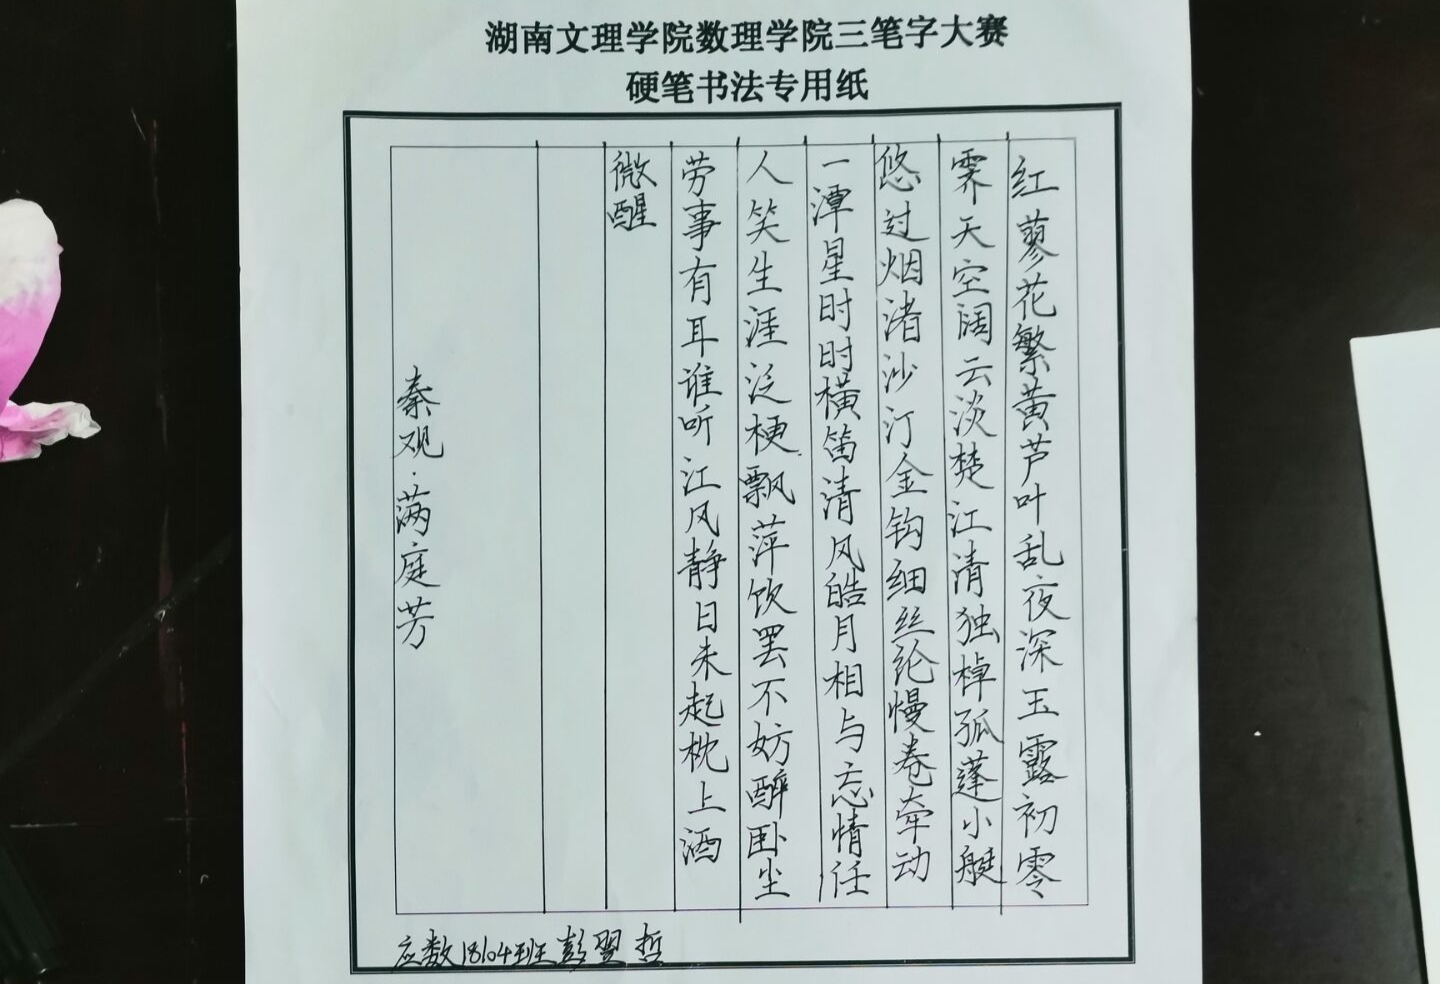 湖南文理学院数理学院三笔字大赛
硬笔书法专用纸
红蓼花繁黄芦叶乱夜深玉露初零
霁天空阔云淡楚江清独棹孤蓬小艇
悠过烟渚沙汀金钩细丝纶慢卷牵动
一潭星时时横笛清风皓月相与忘情任
人笑生涯泛梗飘萍饮罢不妨醉卧尘
劳事有耳谁听江风静日未起枕上酒
微醒
秦观·满庭芳
应数18104班彭翌哲